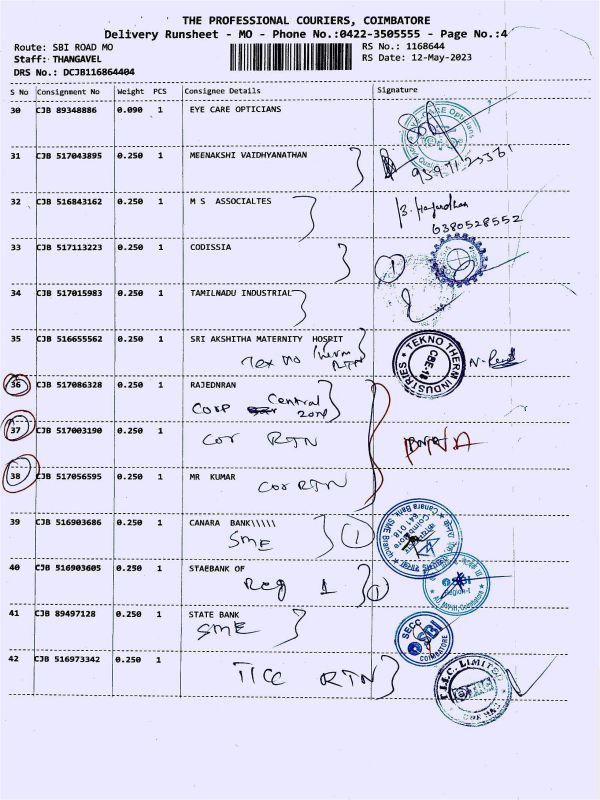 THE PROFESSIONAL COURIERS, COIMBATORE
Delivery Runsheet - MO - Phone No.:0422-3505555 - Page No.:4
Route: SBI ROAD MO RS No.: 1168644
Staff: THANGAVEL RS Date: 12-May-2023
DRS No.: DCJB116864404
S No Consignment No Weight PCS Consignee Details Signature
30 CJB 89348886 0.090 1 EYE CARE OPTICIANS
31 CJB 517043895 0.250 1 MEENAKSHI VAIDHYANATHAN
32 CJB 516843162 0.250 1 M S ASSOCIALTES
6380528552
33 CJB 517113223 0.250 1 CODISSIA 1
34 CJB 517015983 0.250 1 TAMILNADU INDUSTRIAL
35 CJB 516655562 0.250 1 SRI AKSHITHA MATERNITY HOSPIT
RTN
TEKNO THERM INDUSTRIES
CBE-18
36 CJB 517086328 0.250 1 RAJEDNRAN
Corp Central zone
37 CJB 517003190 0.250 1
Cor RTN
38 CJB 517056595 0.250 1 MR KUMAR
Cor RTN
39 CJB 516903686 0.250 1 CANARA BANK\\\\\
SME 1
Canara Bank SME Branch
Coimbatore
641 018
40 CJB 516903605 0.250 1 STAEBANK OF
Reg 1 1
SBI
Region-I
41 CJB 89497128 0.250 1 STATE BANK
SME
SECC
SBI
COIMBATORE
42 CJB 516973342 0.250 1
TICC RTN
LIMITED